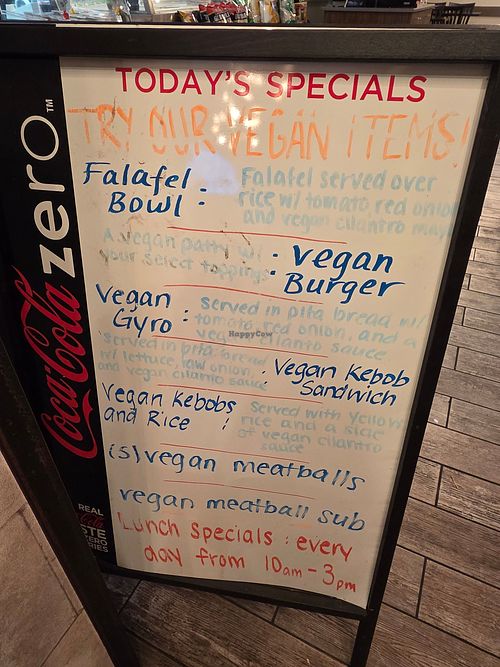 TODAY'S SPECIALS
TRY OUR VEGAN ITEMS!
Falafel Bowl :
Falafel served over
rice w/ tomato, red onion
and vegan cilantro mayo
A vegan patty w/
your select toppings
: Vegan Burger
Vegan Gyro :
served in pita bread w/
tomato, red onion, and a
vegan cilanto sauce
served in pita bread
w/ lettuce, raw onion,
and vegan cilantro sauce
: Vegan Kebob
Sandwich
Vegan Kebobs
and Rice :
Served with Yellow
rice and a side
of vegan cilantro
sauce
(5) vegan meatballs
vegan meatball sub
Lunch specials : every
day from 10am - 3pm
Coca-Cola zero™
REAL
Coca-Cola
HappyCow